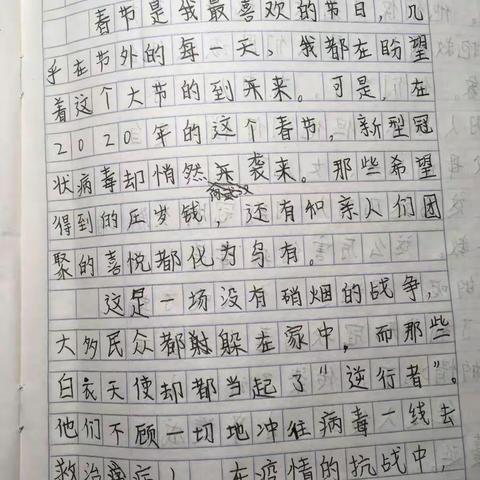 春节是我最喜欢的节日，几
乎在节外的每一天、我都在盼望
着这个大节的到来。可是，在
2020年的这个春节，新型冠
状病毒却悄然袭来。那些希望
得到的压岁钱，还有和亲人们团
聚的喜悦都化为乌有。
这是一场没有硝烟的战争，
大多民众都躲在家中，而那些
白衣天使却都当起了“逆行者”。
他们不顾一切地冲往病毒一线去
救治病人，在疫情的抗战中，